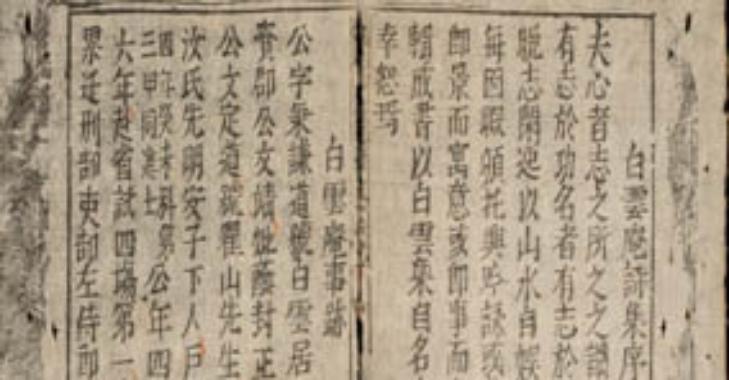 白雲庵詩集序
夫心者志之所之之謂
有志於功名者有志於
志閑逸以山水自娛
每因暇頗托興吟詠或
即景而寓意或即事而
輯成書以白雲集自名
幸恕焉
白雲庵事跡
公字秉謙道號白雲居
郡公文靖妣蔭封正
公文定道號瞿山先生
汝氏先明安子下人戶
年癸未科第
三甲同士
公年四
六年赴省試四場第一
累迁刑部吏部左侍郎